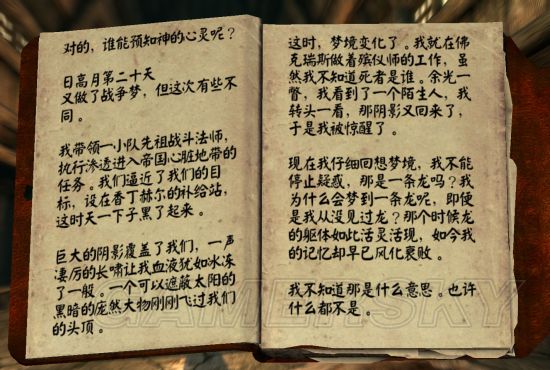 对的，谁能预知神的心灵呢？
日高月第二十天
又做了战争梦，但这次有些不
同。
我带领一小队先祖战斗法师，
执行渗透进入帝国心脏地带的
任务。我们逼近了我们的目
标，设在香丁赫尔的补给站，
这时天一下子黑了起来。
巨大的阴影覆盖了我们，一声
凄厉的长啸让我血液犹如冰冻
了一般。一个可以遮蔽太阳的
黑暗的庞然大物刚刚飞过我们
的头顶。
这时，梦境变化了。我就在佛
克瑞斯做着殡仪师的工作，虽
然我不知道死者是谁。余光一
瞥，我看到了一个陌生人，我
转头一看，那阴影又回来了，
于是我被惊醒了。
现在我仔细回想梦境，我不能
停止疑惑，那是一条龙吗？我
为什么会梦到一条龙呢，即便
是我从没见过龙？那个时候龙
的躯体如此活灵活现，如今我
的记忆却早已风化衰败。
我不知道那是什么意思。也许
什么都不是。
GAMERSKY